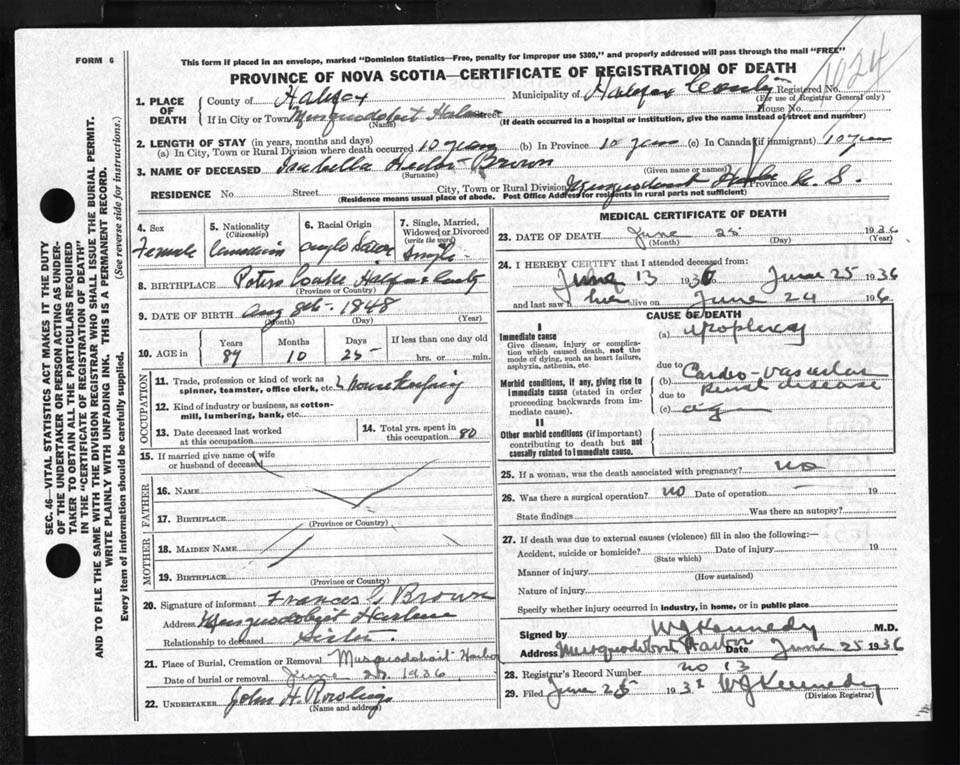 FORM 6
This form if placed in an envelope, marked "Dominion Statistics—Free, penalty for improper use $300," and properly addressed will pass through the mail "FREE"
PROVINCE OF NOVA SCOTIA—CERTIFICATE OF REGISTRATION OF DEATH
1624
1. PLACE OF DEATH
County of Halifax Municipality of Halifax County Registered No.
(For use of Registrar General only)
If in City or Town Musquodoboit Harbour Street House No.
(Name) (If death occurred in a hospital or institution, give the name instead of street and number)
2. LENGTH OF STAY (in years, months and days)
(a) In City, Town or Rural Division where death occurred 10 years (b) In Province 10 years (c) In Canada (if immigrant) 10 years
3. NAME OF DECEASED Isabella Brown
(Surname) (Given name or names)
RESIDENCE No. Street City, Town or Rural Division Musquodoboit Harbor Province N. S.
(Residence means usual place of abode. Post Office Address for residents in rural parts not sufficient)
4. Sex
Female
5. Nationality
(Citizenship)
Canadian
6. Racial Origin
Anglo Saxon
7. Single, Married, Widowed or Divorced
(write the word)
Single
8. BIRTHPLACE Halifax County
(Province or Country)
9. DATE OF BIRTH Aug 8th 1848
(Month) (Day) (Year)
10. AGE in
Years Months Days If less than one day old
87 10 25 hrs. or min.
OCCUPATION
11. Trade, profession or kind of work as spinner, teamster, office clerk, etc. housekeeping
12. Kind of industry or business, as cotton-mill, lumbering, bank, etc.
13. Date deceased last worked at this occupation
14. Total yrs. spent in this occupation 80
15. If married give name of wife or husband of deceased
FATHER
16. NAME
17. BIRTHPLACE
(Province or Country)
MOTHER
18. MAIDEN NAME
19. BIRTHPLACE
(Province or Country)
20. Signature of informant Frances G Brown
Address Musquodoboit Harbour
Relationship to deceased Sister
21. Place of Burial, Cremation or Removal Musquodoboit Harbor
Date of burial or removal June 1936
22. UNDERTAKER John H. Rowlings
(Name and address)
MEDICAL CERTIFICATE OF DEATH
23. DATE OF DEATH June 25 1936
(Month) (Day) (Year)
24. I HEREBY CERTIFY that I attended deceased from:
June 13 1936 June 25 1936
and last saw her alive on June 24 1936
CAUSE OF DEATH
I
Immediate cause
Give disease, injury or complication which caused death, not the mode of dying, such as heart failure, asphyxia, asthenia, etc.
(a) apoplexy
due to
Morbid conditions, if any, giving rise to immediate cause (stated in order proceeding backwards from immediate cause).
(b) Cardio-vascular renal disease
due to
(c) age
II
Other morbid conditions (if important) contributing to death but not causally related to immediate cause.
25. If a woman, was the death associated with pregnancy? no
26. Was there a surgical operation? no Date of operation – 19
State findings Was there an autopsy?
27. If death was due to external causes (violence) fill in also the following:—
Accident, suicide or homicide? Date of injury 19
(State which)
Manner of injury
(How sustained)
Nature of injury
Specify whether injury occurred in industry, in home, or in public place
Signed by WJ Kennedy M.D.
Address Musquodoboit Harbor Date June 25 1936
28. Registrar's Record Number no 13
29. Filed June 25 193 WJ Kennedy
(Division Registrar)
SEC. 46—VITAL STATISTICS ACT MAKES IT THE DUTY
OF THE UNDERTAKER OR PERSON ACTING AS UNDER-
TAKER TO OBTAIN ALL THE PARTICULARS REQUIRED
IN THE "CERTIFICATE OF REGISTRATION OF DEATH"
AND TO FILE THE SAME WITH THE DIVISION REGISTRAR WHO SHALL ISSUE THE BURIAL PERMIT.
WRITE PLAINLY WITH UNFADING INK. THIS IS A PERMANENT RECORD.
Every item of information should be carefully supplied. (See reverse side for instructions.)